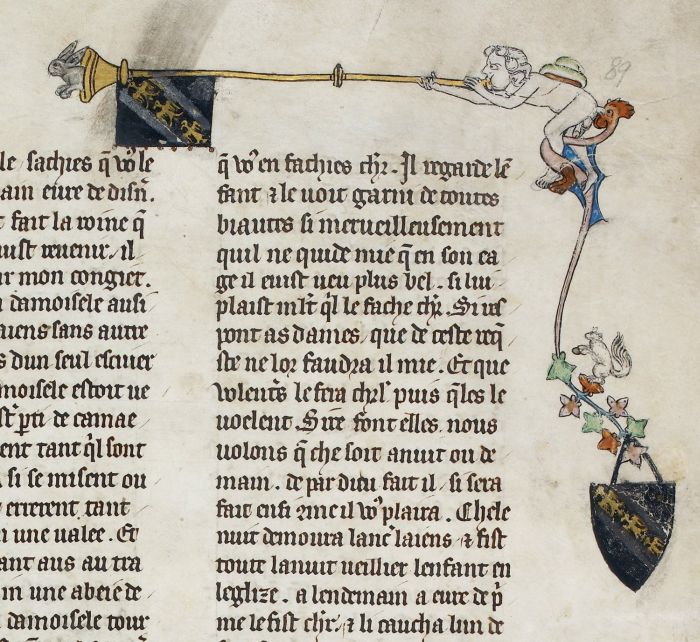 89
le sachies q̄ vo⁹ le
ain eure de disn̄.
t fait la roine q̄
uist reuenir. il
ur mon congiet.
damoisele ausi
laiens sans autre
s dun seul escuier
moisele estoit ue
de camae
ent tant q̄l sont
si se misent ou
errerent tant
n une ualee. Et
ant aus au tra
in une abeie de
damoisele tour
q̄ vo⁹ en fachies chr̄. Il regarde lē
fant ⁊ le uoit garni de toutes
biautes si merueilleusement
quil ne quide mie q̄ en son ea
ge il euist ueu plus bel. si lui
plaist ml̄t q̄l le fache chr̄. Si res
pont as dames. que de ceste req̄
ste ne lor faudra il mie. Et que
volentꝰs le fera chr̄l puis q̄les le
uoelent. Sire font elles. nous
uolons q̄ che soit anuit ou de
main. de par dieu fait il. si sera
fait ensi ꝯme il vo⁹ plaira. Chele
nuit demoura lanc̄ laiens ⁊ fist
toute la nuit ueillier lenfant en
leglize. a lendemain a eure de p̄
me le fist chr̄. ⁊ li caucha lun de